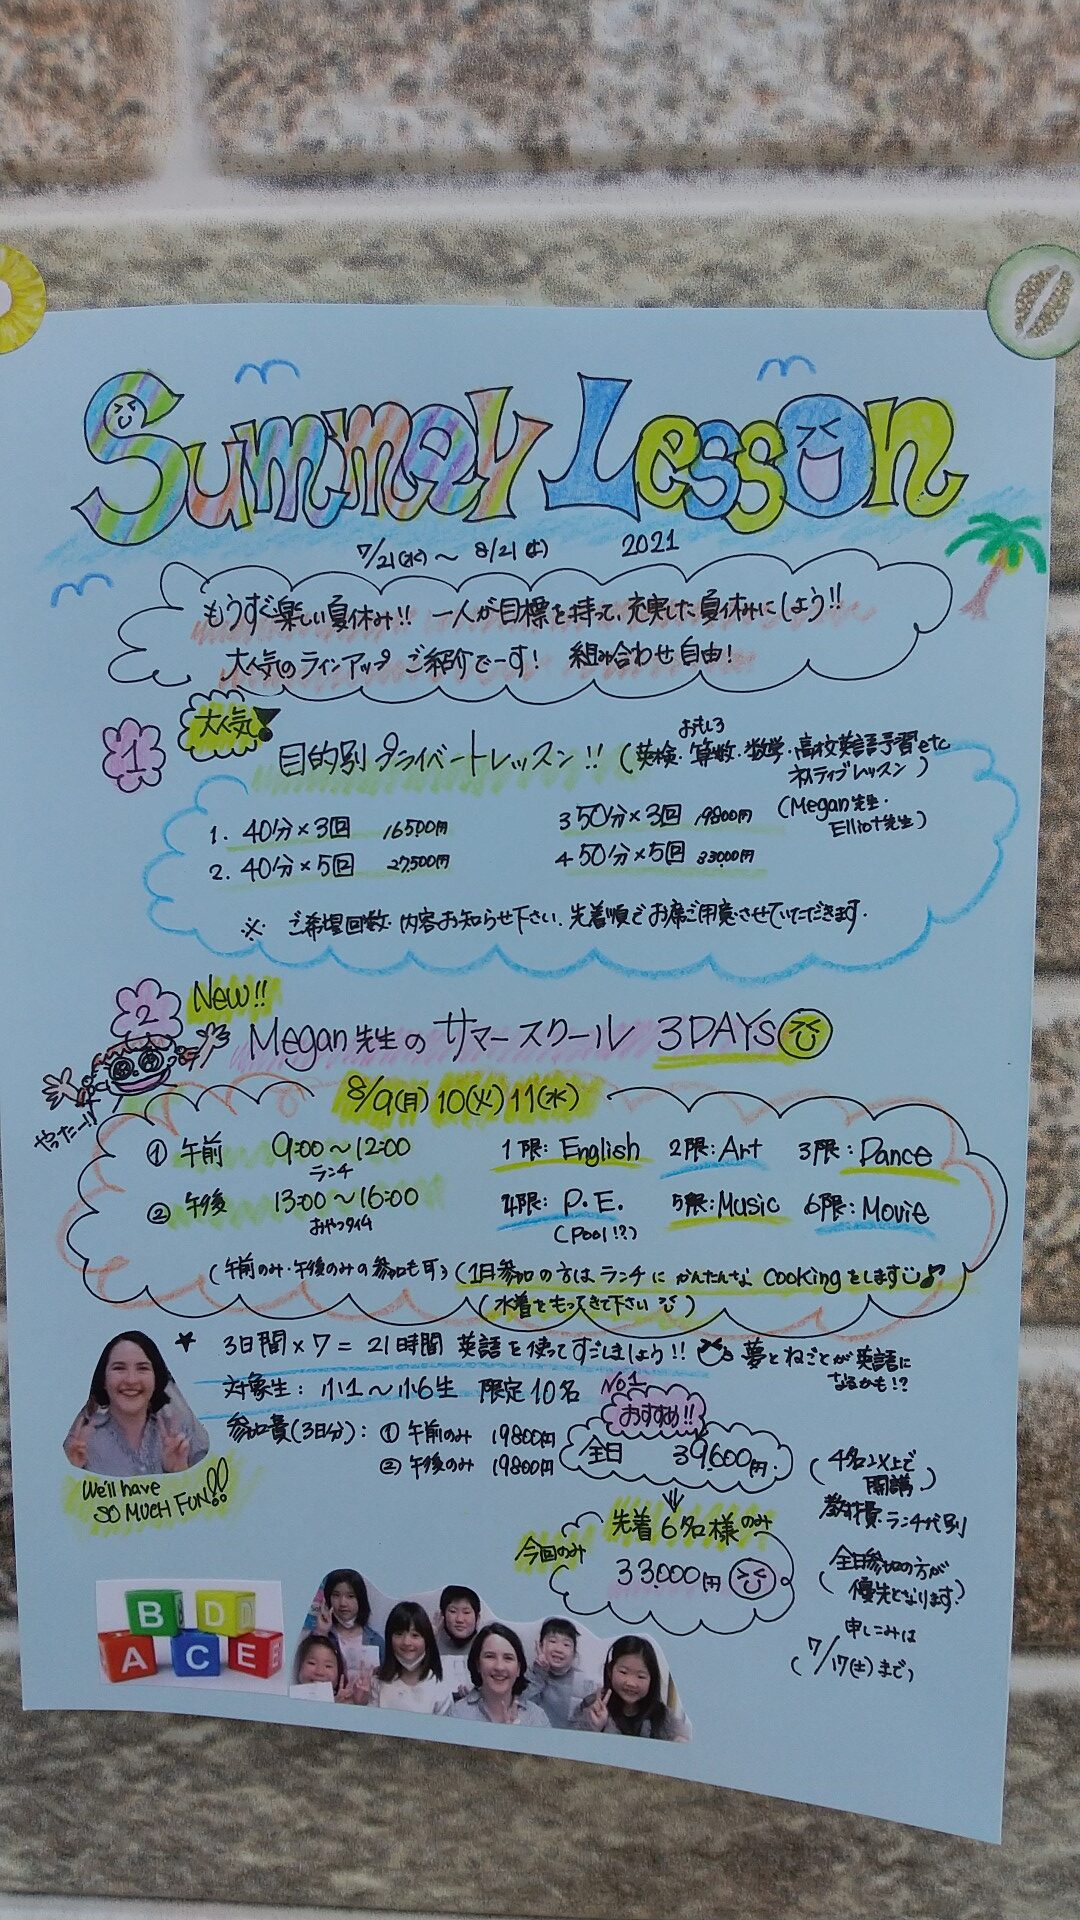 Summer Lesson
7/21(水)〜 8/21(土) 2021
もうすぐ楽しい夏休み!! 一人が目標を持って、充実した夏休みにしよう!!
大人気のラインアップ ご紹介でーす! 組み合わせ自由!
1 大人気! 目的別プライベートレッスン!! (英検・算数・数学・高校英語予習etc
おもしろ
ネイティブレッスン)
(Megan先生・
Elliot先生)
1. 40分×3回 16500円
3 50分×3回 19800円
2. 40分×5回 27,500円
4 50分×5回 33,000円
※ ご希望回数・内容お知らせ下さい、先着順でお席ご用意させていただきます.
2 New!!
Megan先生の サマースクール 3DAYS
やったー!!
8/9(月) 10(火) 11(水)
① 午前 9:00〜12:00
ランチ
② 午後 13:00〜16:00
おやつタイム
1限: English 2限: Art 3限: Dance
4限: P.E. 5限: Music 6限: Movie
(Pool!?)
(午前のみ・午後のみの参加も可) (1日参加の方はランチに かんたんな cookingをします♪
(水着をもってきて下さい )
★ 3日間×7=21時間 英語を使ってすごしましょう!! 夢とねごとが英語に
なるかも!?
対象生: 小1〜小6生 限定10名
参加費(3日分): ① 午前のみ 19800円
② 午後のみ 19800円
No1
おすすめ!!
全日 39,600円
(4名以上で
開講)
教材費・ランチ代別
先着6名様のみ
今回のみ
33,000円
(全日参加の方が
優先となります)
申しこみは
(7/17(土)まで)
We'll have
SO MUCH FUN!!
B D
A C E